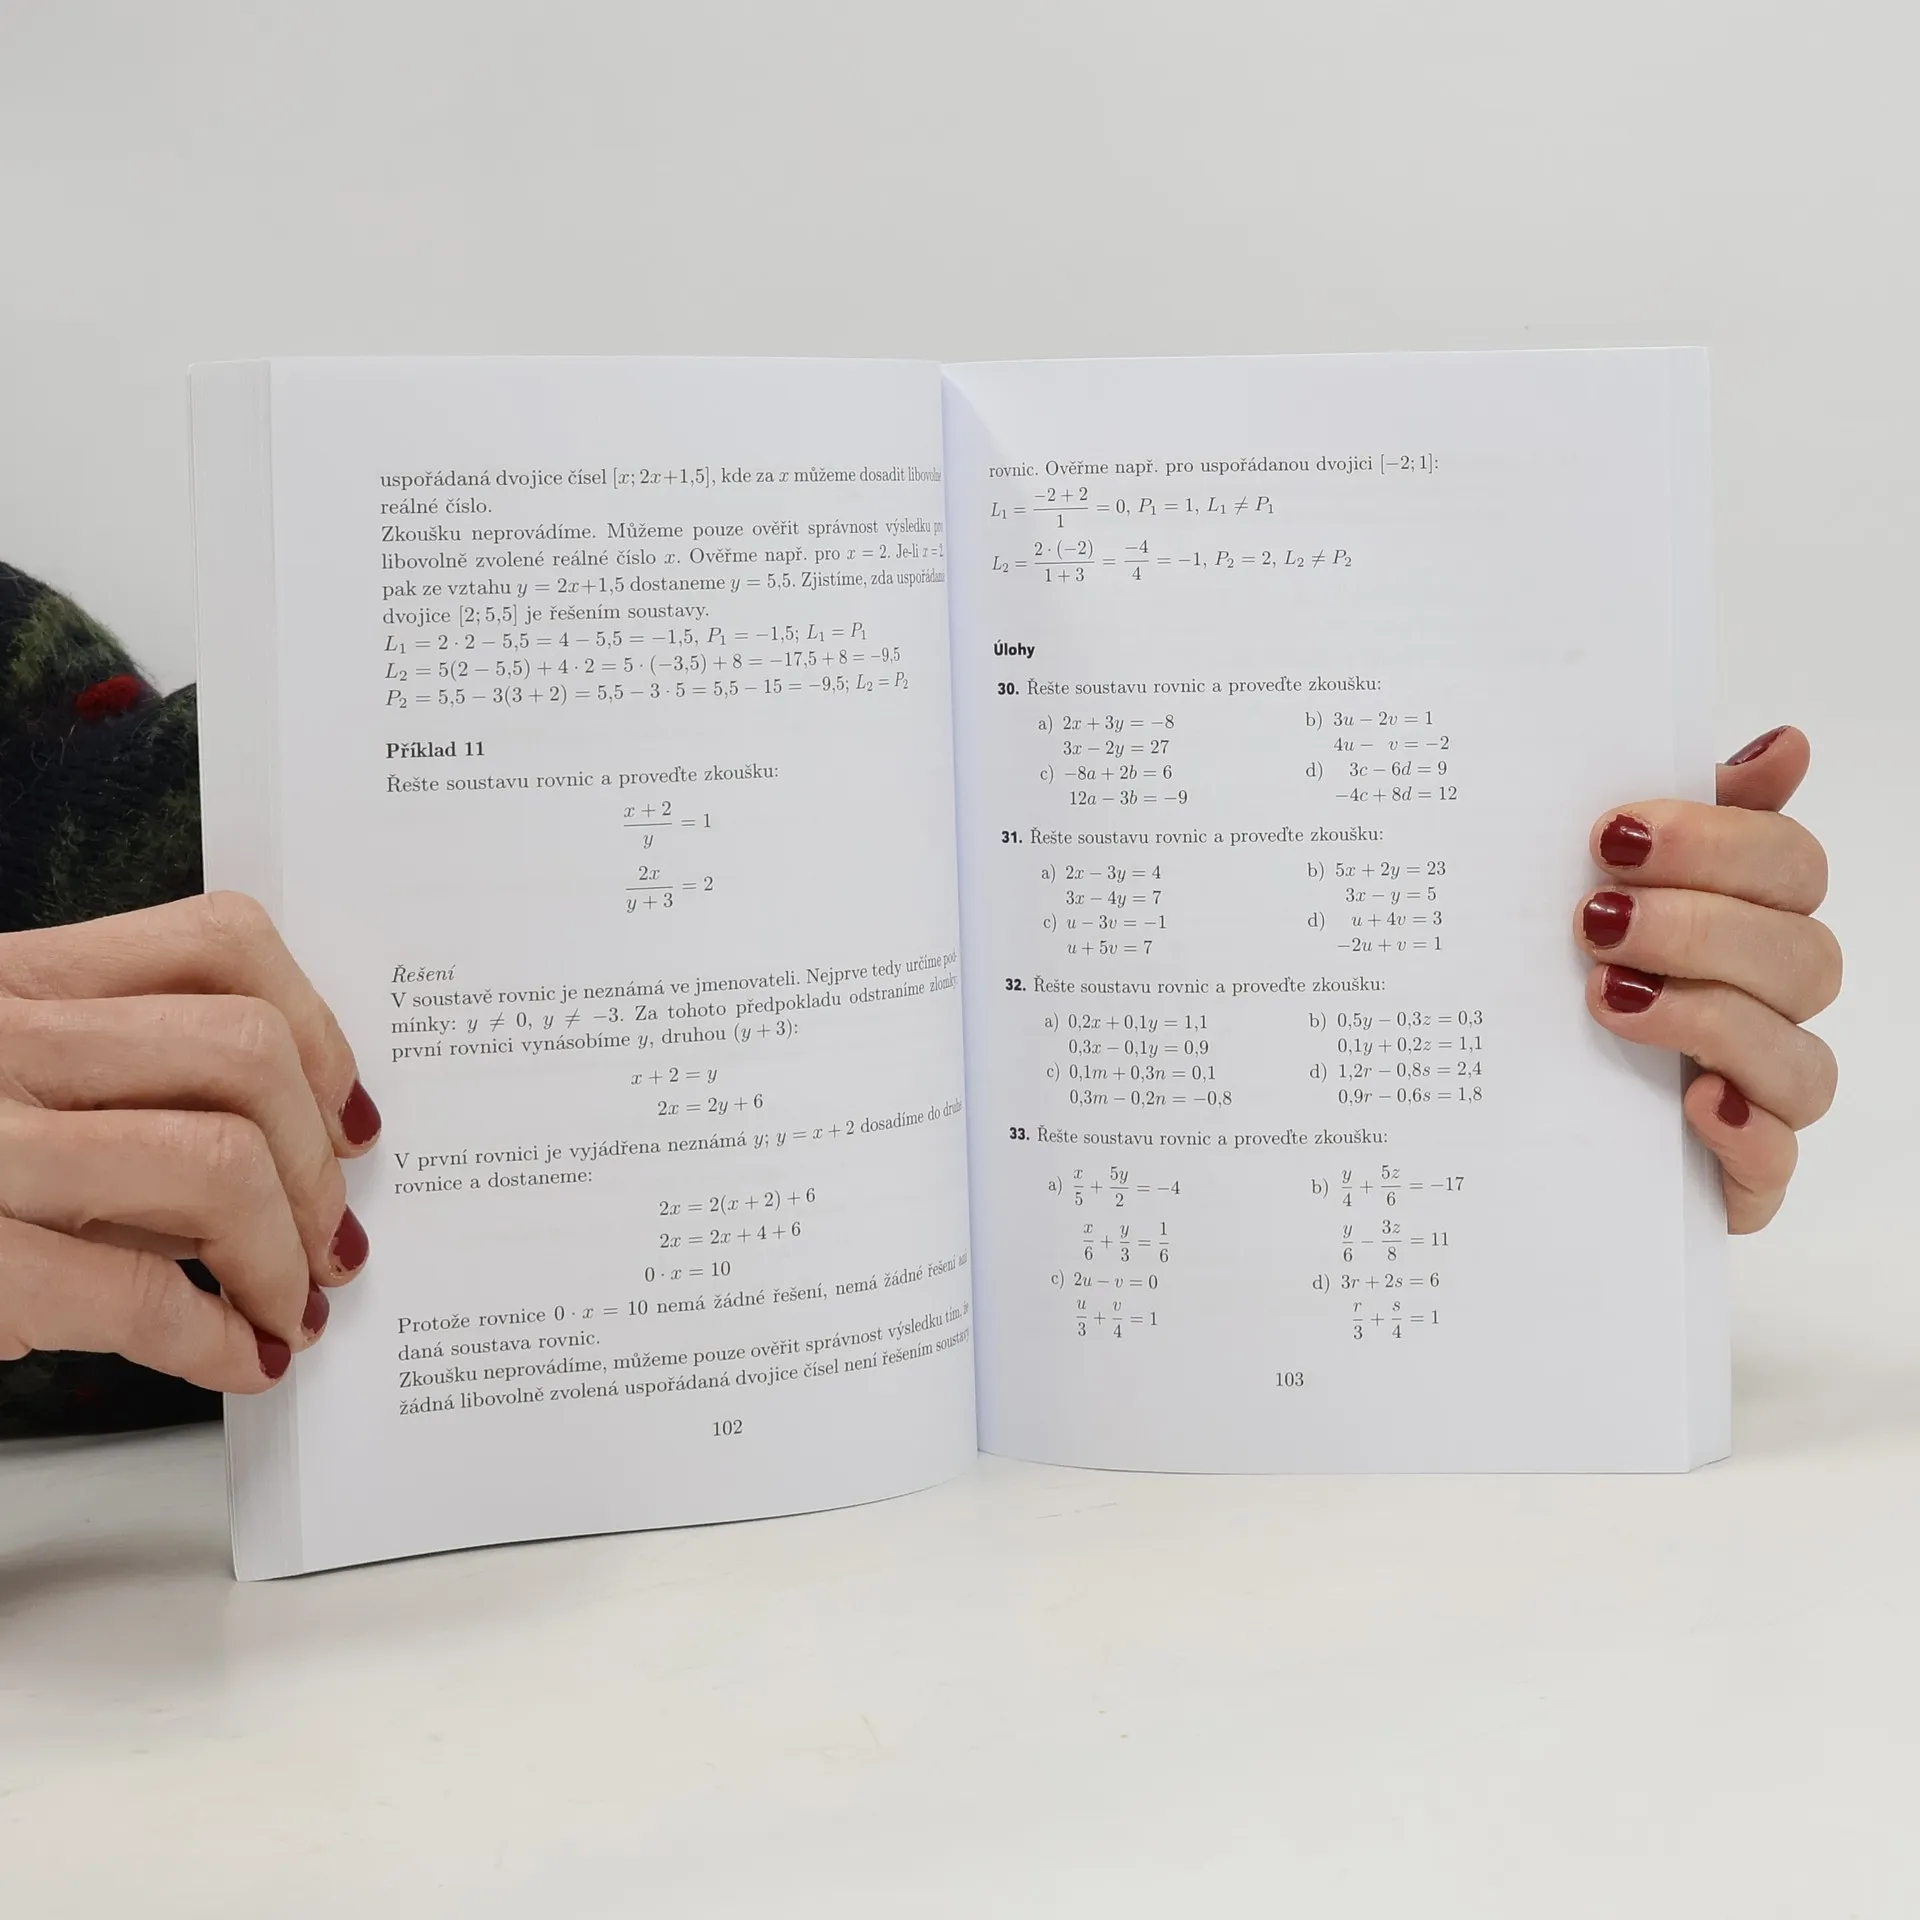 uspořádaná dvojice čísel [x; 2x+1,5], kde za x můžeme dosadit libovolné
reálné číslo.
Zkoušku neprovádíme. Můžeme pouze ověřit správnost výsledku pro
libovolně zvolené reálné číslo x. Ověřme např. pro x = 2. Je-li x = 2,
pak ze vztahu y = 2x+1,5 dostaneme y = 5,5. Zjistíme, zda uspořádaná
dvojice [2; 5,5] je řešením soustavy.
L₁ = 2 · 2 − 5,5 = 4 − 5,5 = −1,5, P₁ = −1,5; L₁ = P₁
L₂ = 5(2 − 5,5) + 4 · 2 = 5 · (−3,5) + 8 = −17,5 + 8 = −9,5
P₂ = 5,5 − 3(3 + 2) = 5,5 − 3 · 5 = 5,5 − 15 = −9,5; L₂ = P₂
Příklad 11
Řešte soustavu rovnic a proveďte zkoušku:
(x + 2)/y = 1
2x/(y + 3) = 2
Řešení
V soustavě rovnic je neznámá ve jmenovateli. Nejprve tedy určíme pod-
mínky: y ≠ 0, y ≠ −3. Za tohoto předpokladu odstraníme zlomky:
první rovnici vynásobíme y, druhou (y + 3):
x + 2 = y
2x = 2y + 6
V první rovnici je vyjádřena neznámá y; y = x + 2 dosadíme do druhé
rovnice a dostaneme:
2x = 2(x + 2) + 6
2x = 2x + 4 + 6
0 · x = 10
Protože rovnice 0 · x = 10 nemá žádné řešení, nemá žádné řešení ani
daná soustava rovnic.
Zkoušku neprovádíme, můžeme pouze ověřit správnost výsledku tím, že
žádná libovolně zvolená uspořádaná dvojice čísel není řešením soustavy
102
rovnic. Ověřme např. pro uspořádanou dvojici [−2; 1]:
L₁ = (−2 + 2)/1 = 0, P₁ = 1, L₁ ≠ P₁
L₂ = (2 · (−2))/(1 + 3) = −4/4 = −1, P₂ = 2, L₂ ≠ P₂
Úlohy
30. Řešte soustavu rovnic a proveďte zkoušku:
a) 2x + 3y = −8 b) 3u − 2v = 1
3x − 2y = 27 4u − v = −2
c) −8a + 2b = 6 d) 3c − 6d = 9
12a − 3b = −9 −4c + 8d = 12
31. Řešte soustavu rovnic a proveďte zkoušku:
a) 2x − 3y = 4 b) 5x + 2y = 23
3x − 4y = 7 3x − y = 5
c) u − 3v = −1 d) u + 4v = 3
u + 5v = 7 −2u + v = 1
32. Řešte soustavu rovnic a proveďte zkoušku:
a) 0,2x + 0,1y = 1,1 b) 0,5y − 0,3z = 0,3
0,3x − 0,1y = 0,9 0,1y + 0,2z = 1,1
c) 0,1m + 0,3n = 0,1 d) 1,2r − 0,8s = 2,4
0,3m − 0,2n = −0,8 0,9r − 0,6s = 1,8
33. Řešte soustavu rovnic a proveďte zkoušku:
a) x/5 + 5y/2 = −4 b) y/4 + 5z/6 = −17
x/6 + y/3 = 1/6 y/6 − 3z/8 = 11
c) 2u − v = 0 d) 3r + 2s = 6
u/3 + v/4 = 1 r/3 + s/4 = 1
103